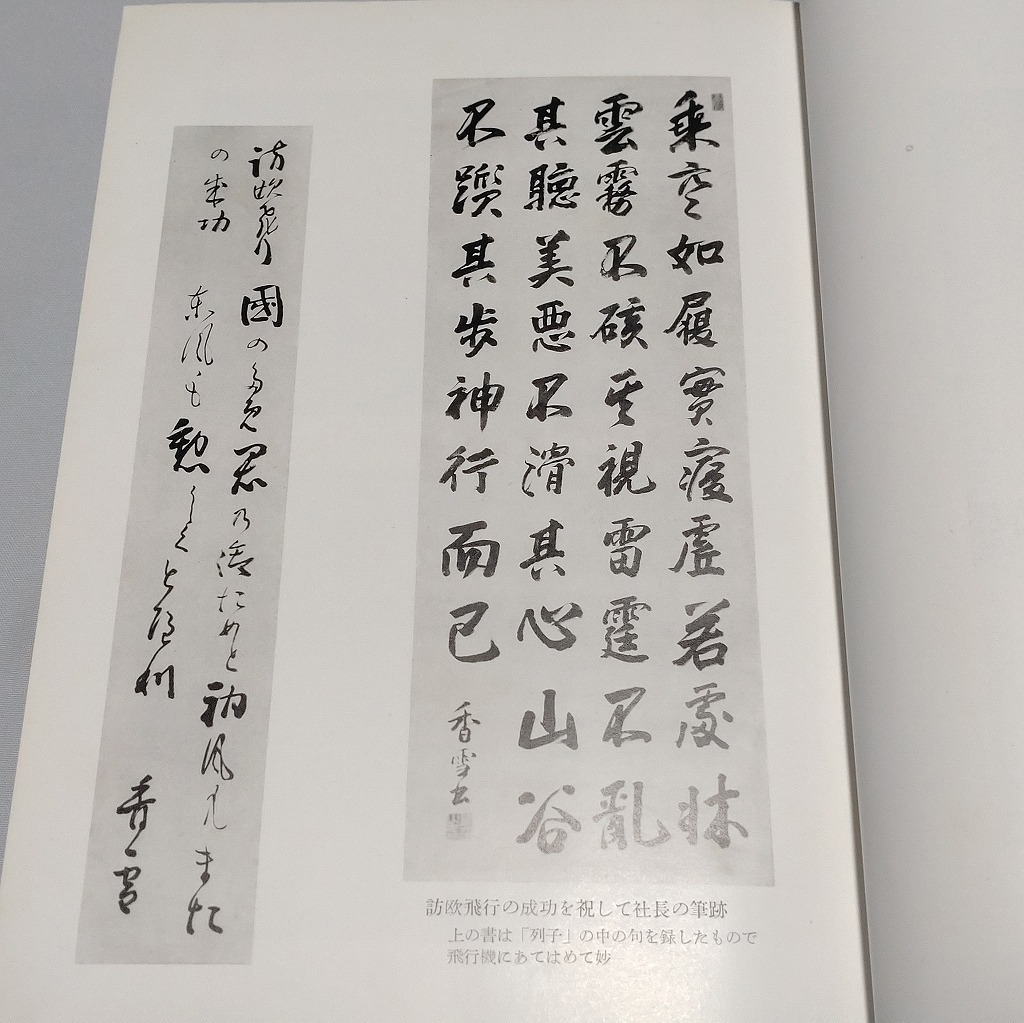 乗空如履實寝虚若處牀
雲霧不硋其視雷霆不亂
其聽美悪不滑其心山谷
不躓其歩神行而已
香雪書
訪欧飛行
の成功
國の君乃
東風も
香雪
訪欧飛行の成功を祝して社長の筆跡
上の書は「列子」の中の句を録したもので
飛行機にあてはめて妙